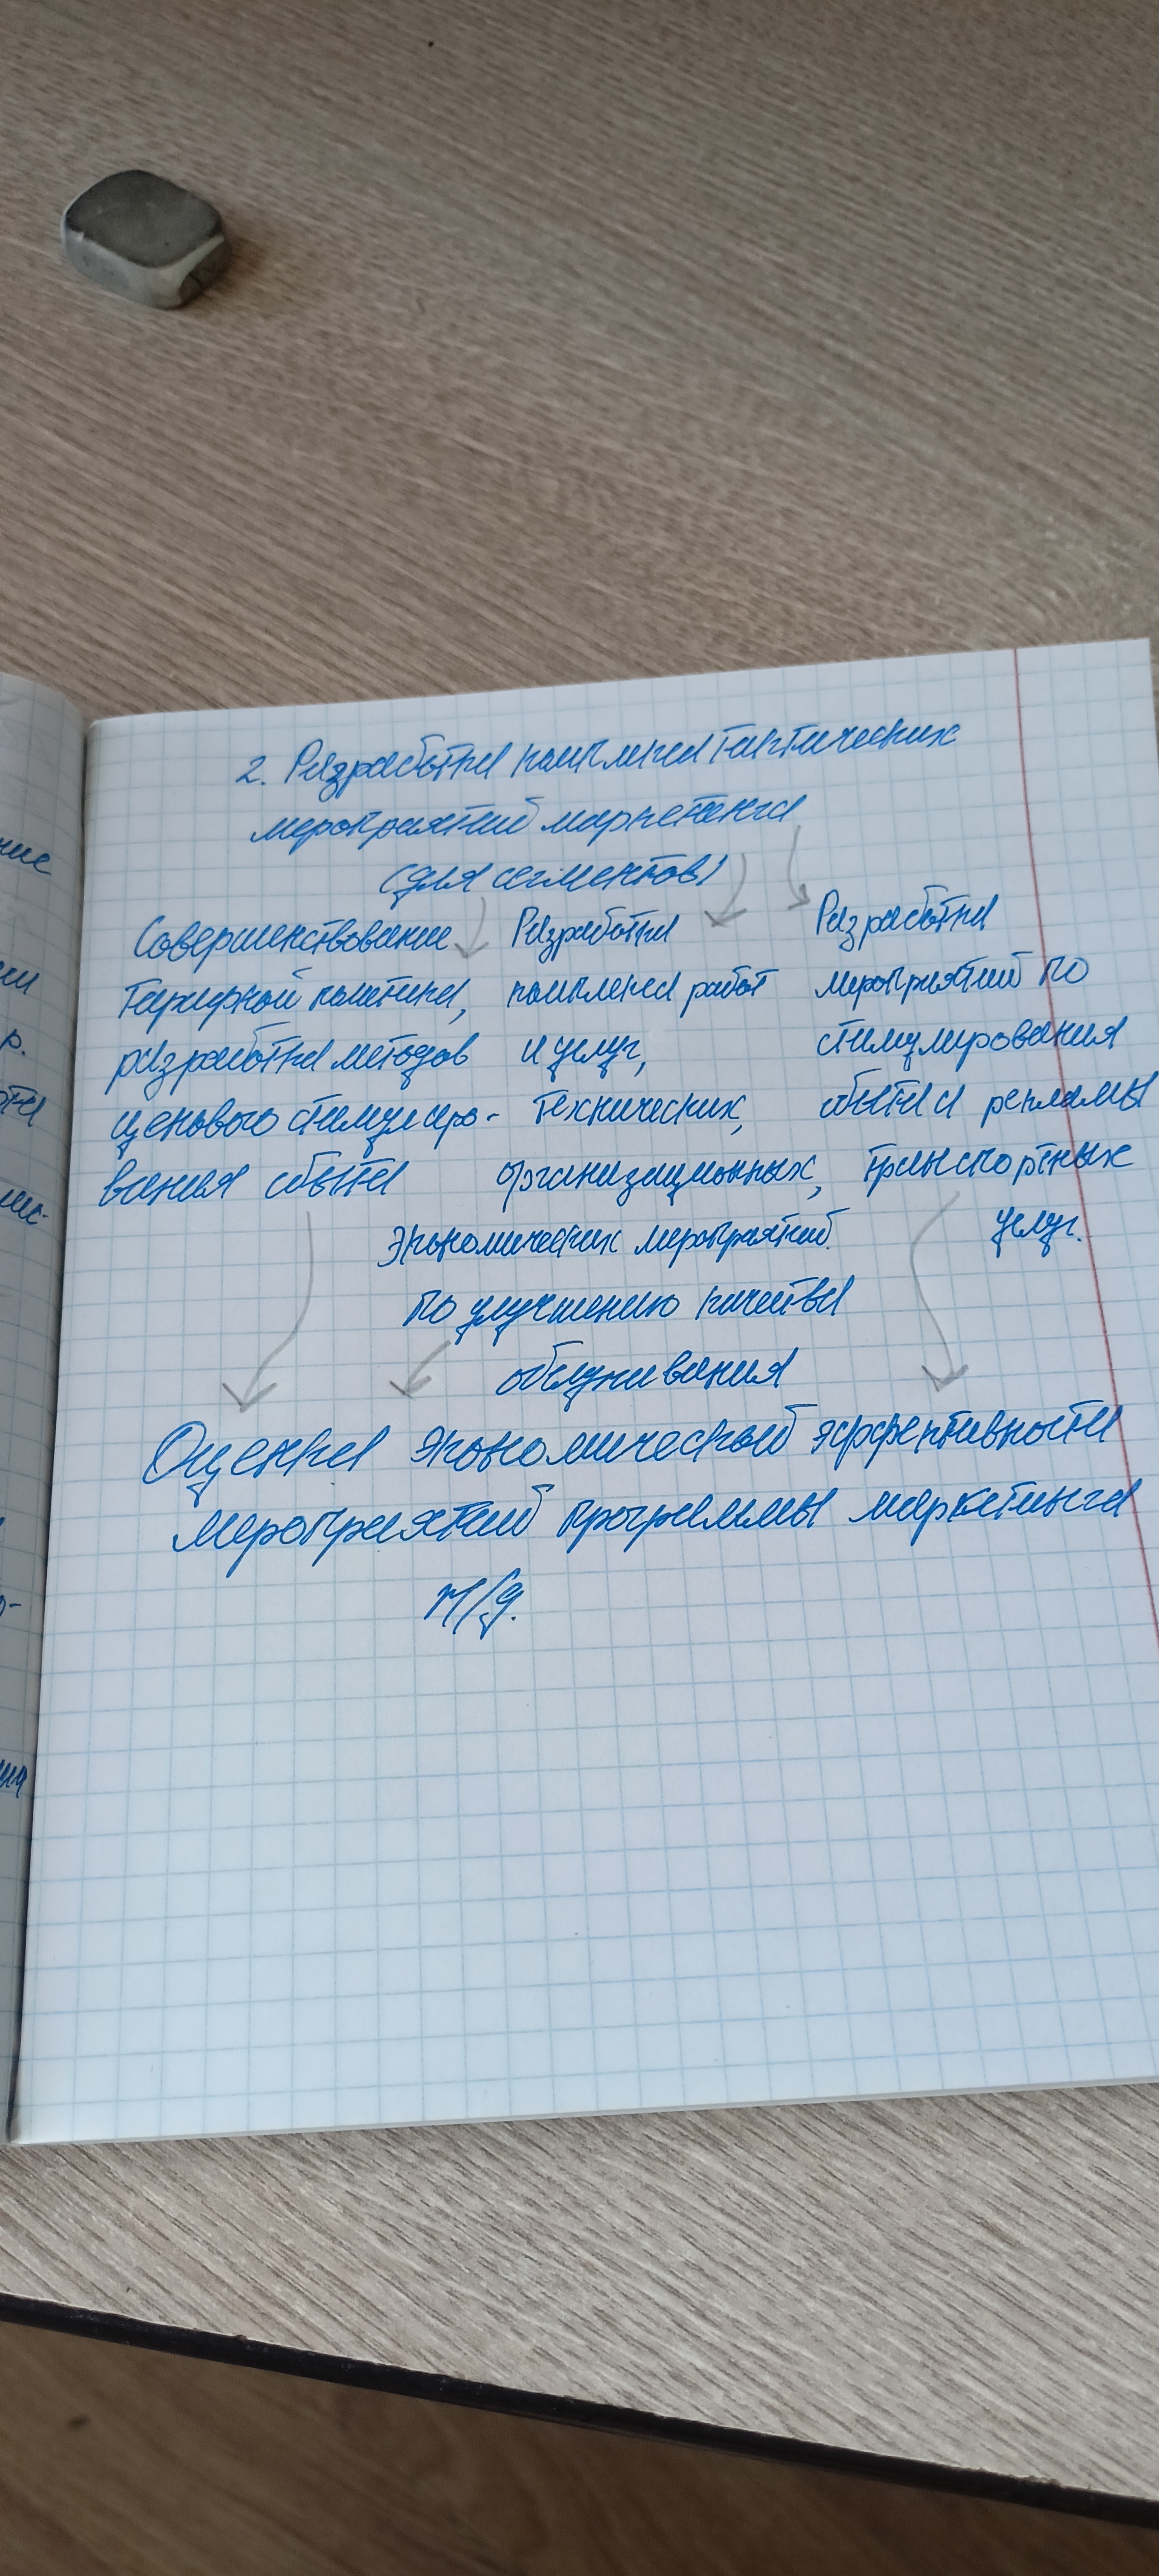 2. Разработка комплекса тактических
мероприятий маркетинга
(для сегментов)
Совершенствование
тарифной политики,
разработка методов
ценового стимулиро-
вания сбыта
Разработка
комплекса работ
и услуг,
технических,
организационных,
экономических мероприятий
по улучшению качества
обслуживания
Разработка
мероприятий по
стимулирования
сбыта и рекламы
транспортных
услуг.
Оценка экономической эффективности
мероприятий программы маркетинга
ние
р.